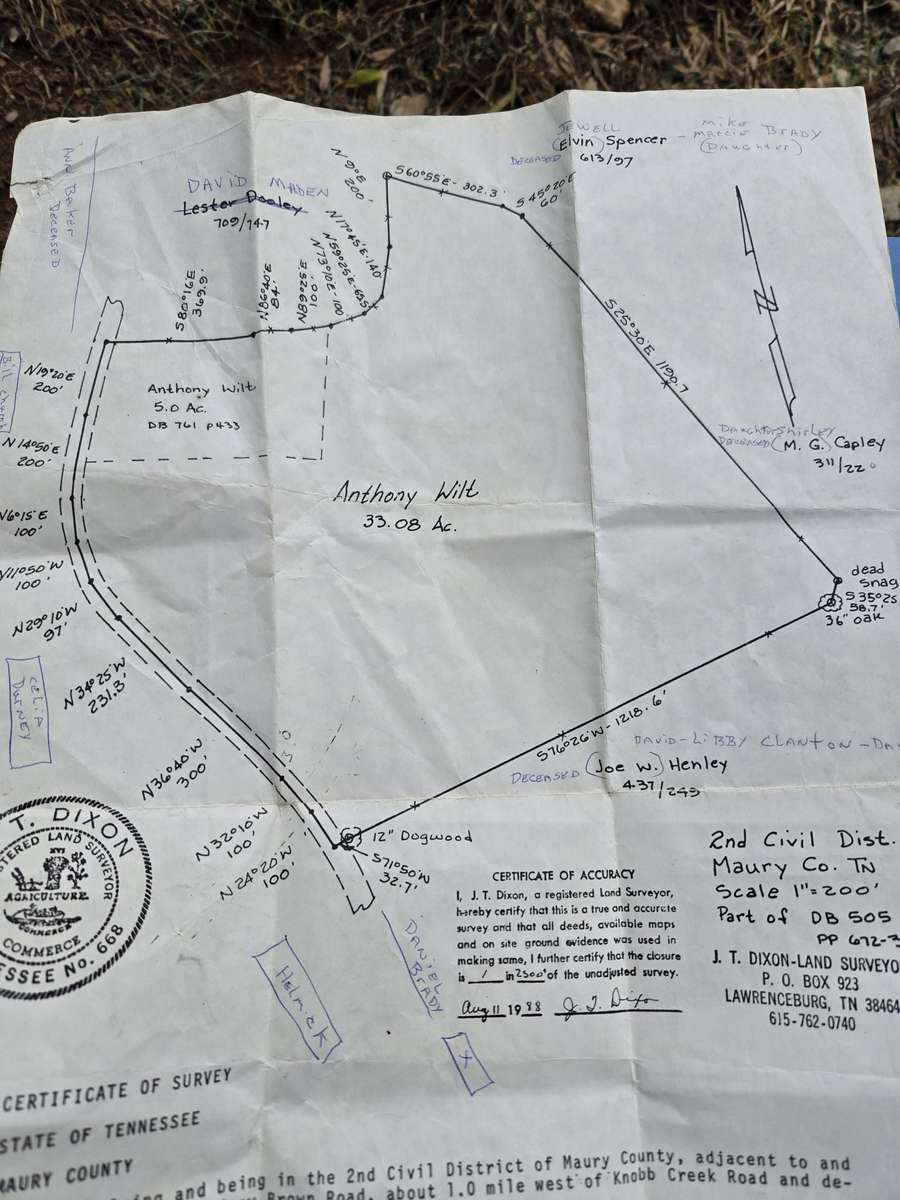 JEWELL
(Elvin) Spencer - Mike
Marcia BRADY
(DAUGHTER)
DECEASED 613/97
DAVID MADEN
Lester Dooley
709/747
BAKER
DECEASED
N 9° E
200'
S 60°55'E - 302.3'
S 45°20'E
60'
N 17°45'E - 140'
N 59°25'E - 69.5
N 73°10'E - 100
N 89°25'E
100'
N 86°40'E
84'
S 80°16'E
369.9'
S 25°30'E 1190.7
N
N 19°20'E
200'
Anthony Wilt
5.0 Ac.
DB 761 P433
N 14°50'E
200'
Anthony Wilt
33.08 Ac.
Daughter Shirley
DECEASED (M. G.) Capley
311/220
N 6°15'E
100'
N 11°50'W
100'
N 29°10'W
97'
dead
snag
S 35°25
58.7'
36" oak
N 34°25'W
231.3'
CELIA
DURNEY
N 36°40'W
300'
S 76°26'W - 1218.6'
DAVID-LIBBY CLANTON - DA
DECEASED (Joe W.) Henley
437/245
N 32°10'W
100'
N 24°20'W
100'
12" Dogwood
S 71°50'W
32.7'
T. DIXON
REGISTERED LAND SURVEYOR
XVI
AGRICULTURE
COMMERCE
COMMERCE
ESSEE No. 668
2nd Civil Dist.
Maury Co. TN
Scale 1"=200'
Part of DB 505
PP 672-3
CERTIFICATE OF ACCURACY
I, J.T. Dixon, a registered Land Surveyor,
hereby certify that this is a true and accurate
survey and that all deeds, available maps
and on site ground evidence was used in
making same, I further certify that the closure
is 1 in 2500' of the unadjusted survey.
Aug 11 1988 J. T. Dixon
J. T. DIXON-LAND SURVEYO
P. O. BOX 923
LAWRENCEBURG, TN 38464
615-762-0740
DANIEL
BRADY
Helmick
X
CERTIFICATE OF SURVEY
STATE OF TENNESSEE
MAURY COUNTY
ing and being in the 2nd Civil District of Maury County, adjacent to and
Brown Road, about 1.0 mile west of Knobb Creek Road and de-